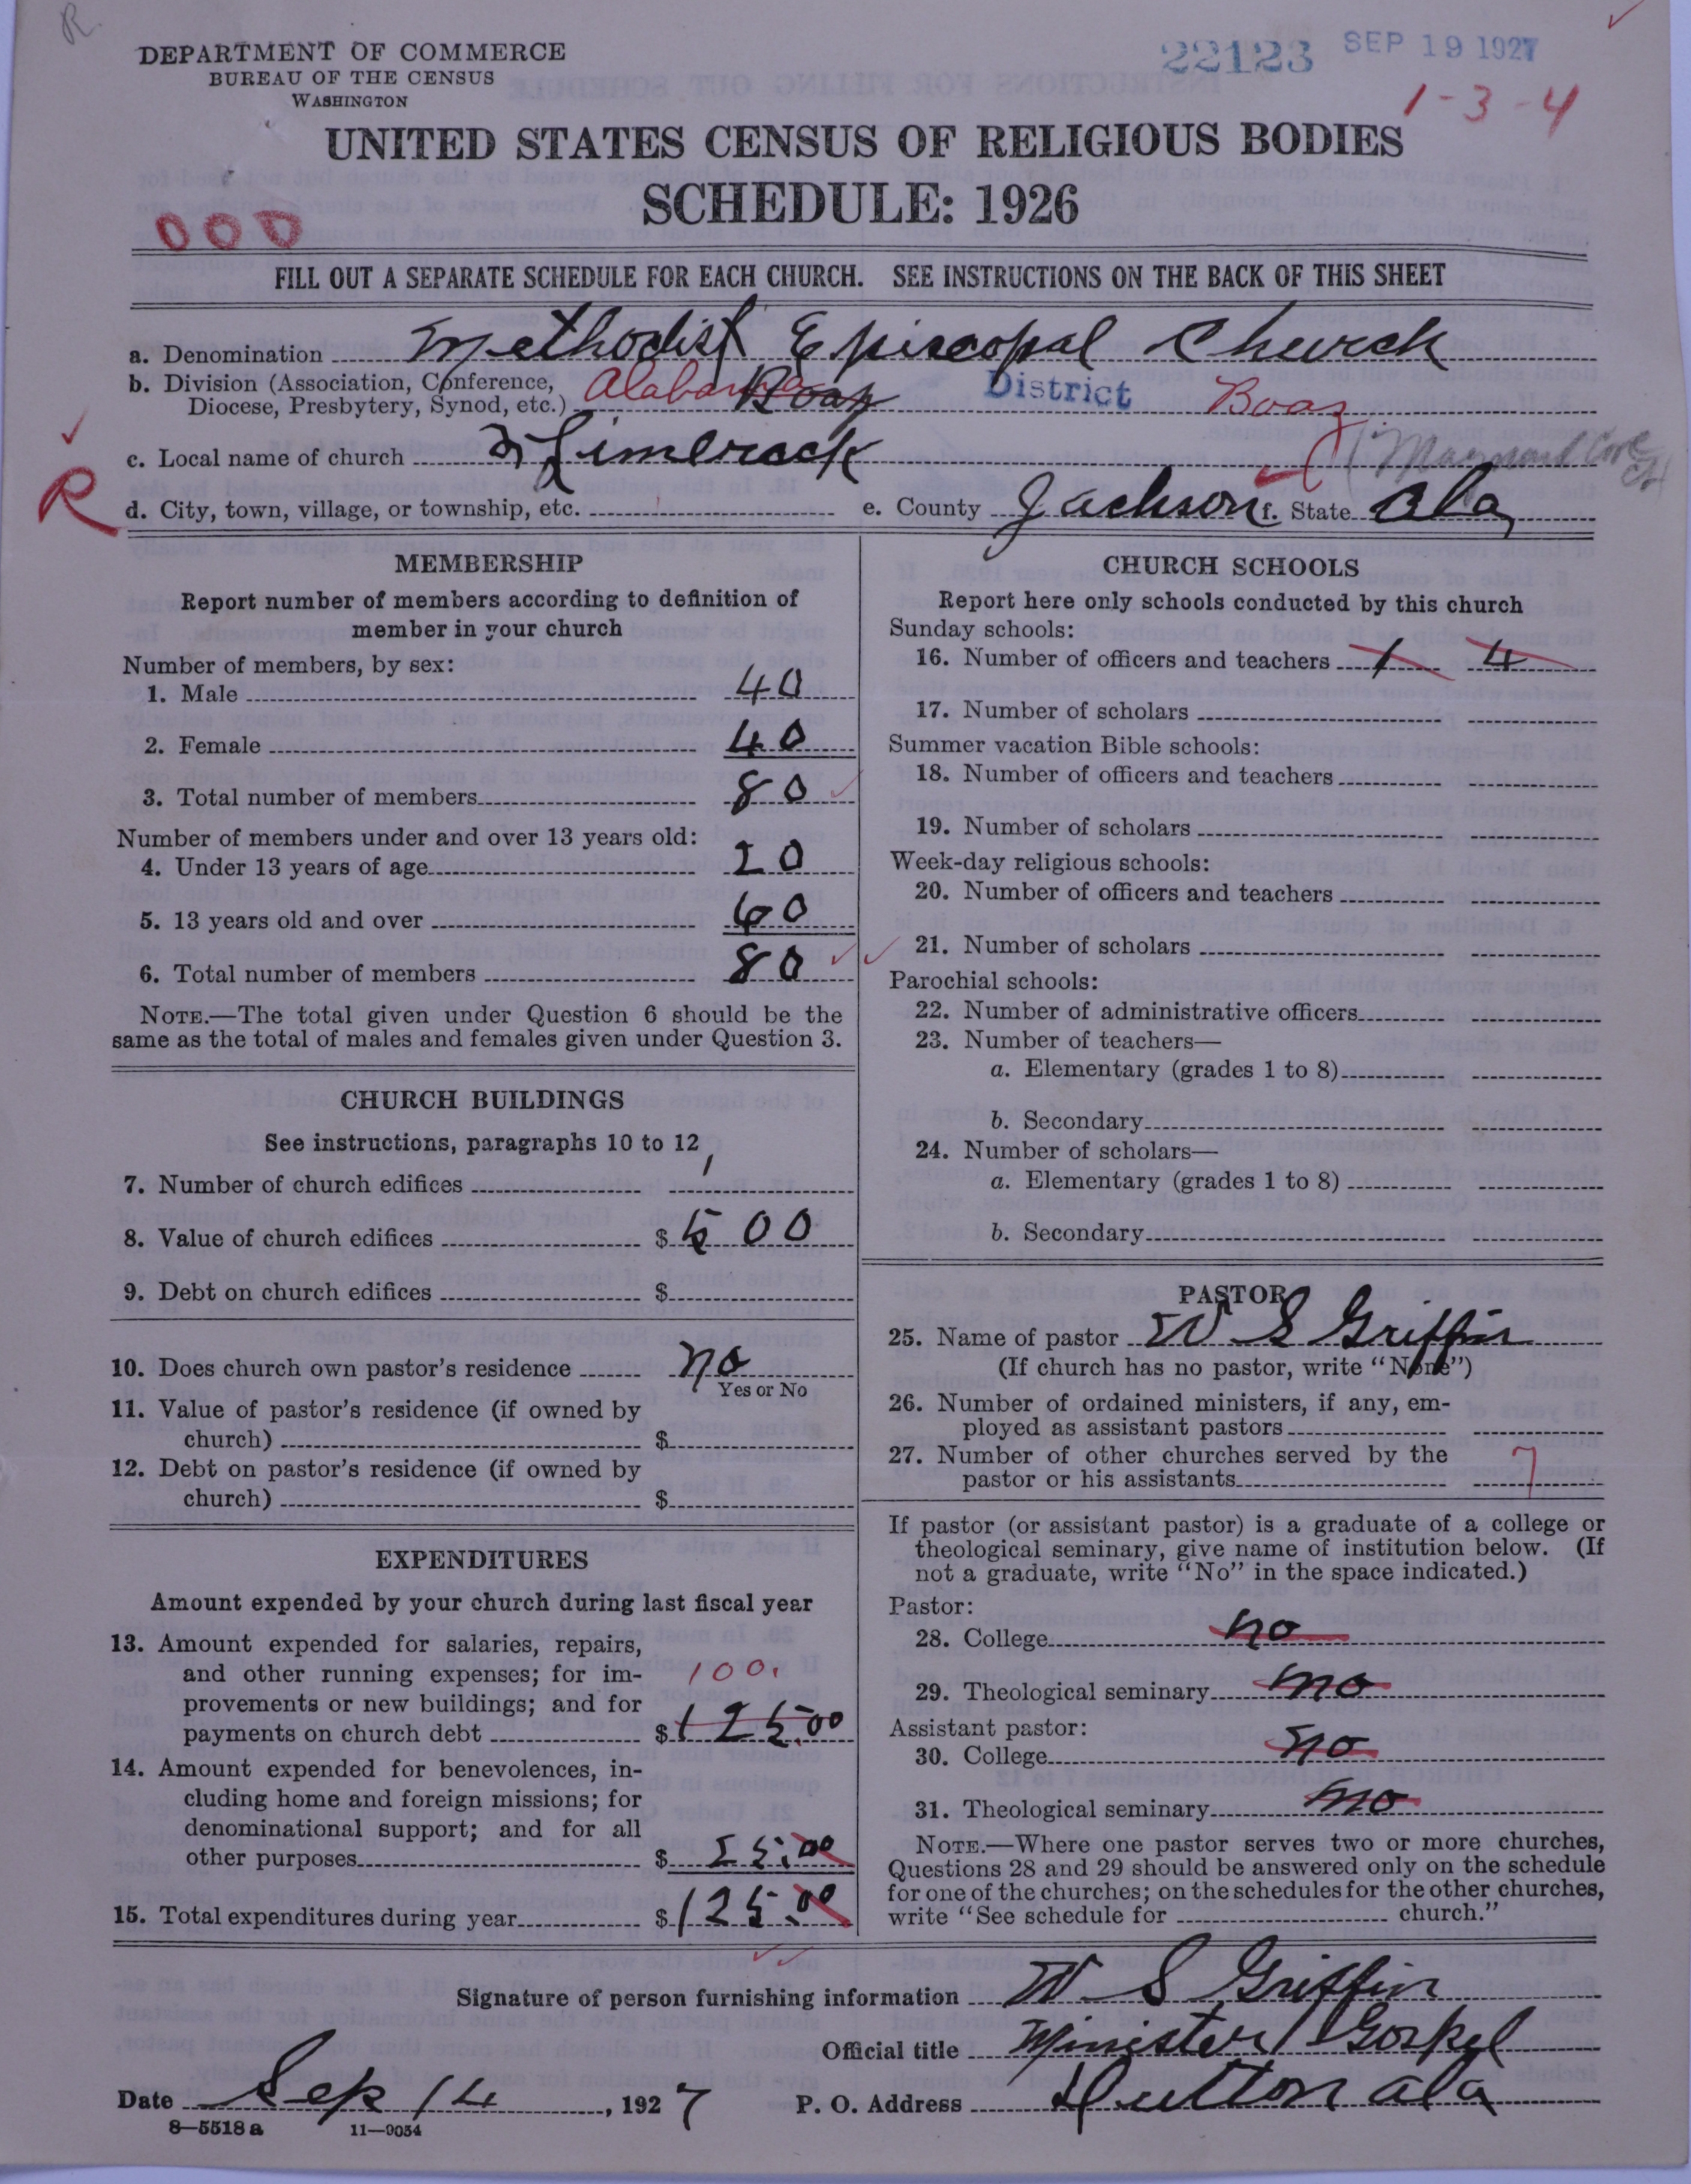 R
22123 SEP 19 1927
1-3-4
DEPARTMENT OF COMMERCE
BUREAU OF THE CENSUS
WASHINGTON
UNITED STATES CENSUS OF RELIGIOUS BODIES
SCHEDULE: 1926
000
FILL OUT A SEPARATE SCHEDULE FOR EACH CHURCH. SEE INSTRUCTIONS ON THE BACK OF THIS SHEET
a. Denomination Methodist Episcopal Church
b. Division (Association, Conference,
Diocese, Presbytery, Synod, etc.) Alabama Boaz District Boaz
c. Local name of church Limerack
R
d. City, town, village, or township, etc. e. County Jackson f. State Ala
MEMBERSHIP
Report number of members according to definition of
member in your church
Number of members, by sex:
1. Male 40
2. Female 40
3. Total number of members 80
Number of members under and over 13 years old:
4. Under 13 years of age 20
5. 13 years old and over 60
6. Total number of members 80
NOTE.—The total given under Question 6 should be the
same as the total of males and females given under Question 3.
CHURCH BUILDINGS
See instructions, paragraphs 10 to 12
7. Number of church edifices 1
8. Value of church edifices $ 500
9. Debt on church edifices $
10. Does church own pastor's residence no
Yes or No
11. Value of pastor's residence (if owned by
church) $
12. Debt on pastor's residence (if owned by
church) $
EXPENDITURES
Amount expended by your church during last fiscal year
13. Amount expended for salaries, repairs,
and other running expenses; for im- 100.
provements or new buildings; and for
payments on church debt $ 125.00
14. Amount expended for benevolences, in-
cluding home and foreign missions; for
denominational support; and for all
other purposes $ 25.00
15. Total expenditures during year $ 125.00
CHURCH SCHOOLS
Report here only schools conducted by this church
Sunday schools:
16. Number of officers and teachers 1 4
17. Number of scholars
Summer vacation Bible schools:
18. Number of officers and teachers
19. Number of scholars
Week-day religious schools:
20. Number of officers and teachers
21. Number of scholars
Parochial schools:
22. Number of administrative officers
23. Number of teachers—
a. Elementary (grades 1 to 8)
b. Secondary
24. Number of scholars—
a. Elementary (grades 1 to 8)
b. Secondary
PASTOR
25. Name of pastor W S Griffin
(If church has no pastor, write "None")
26. Number of ordained ministers, if any, em-
ployed as assistant pastors
27. Number of other churches served by the
pastor or his assistants 7
If pastor (or assistant pastor) is a graduate of a college or
theological seminary, give name of institution below. (If
not a graduate, write "No" in the space indicated.)
Pastor:
28. College no
29. Theological seminary no
Assistant pastor:
30. College no
31. Theological seminary no
NOTE.—Where one pastor serves two or more churches,
Questions 28 and 29 should be answered only on the schedule
for one of the churches; on the schedules for the other churches,
write "See schedule for church."
Signature of person furnishing information W S Griffin
Official title Minister Gospel
Date Sep 14, 1927 P. O. Address Dutton Ala
8—5518a 11—9054